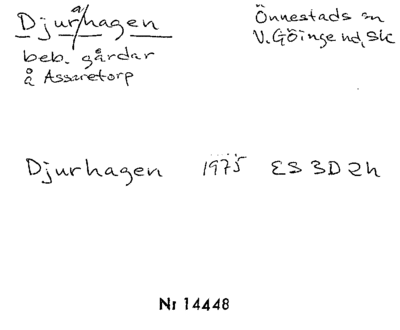 Djur/hagen
a
beb. gårdar
å Assaretorp
Önnestads sn
V. Göinge hd, Sk
Djurhagen 1975 ES 3D2h
Nr 14448